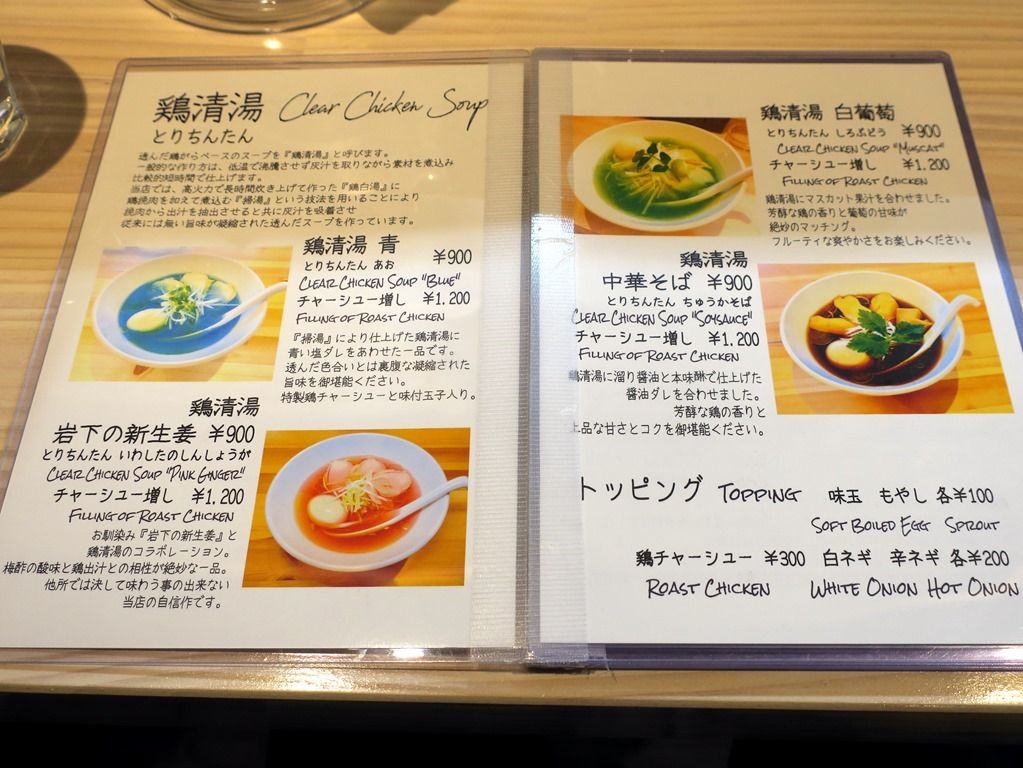 鶏清湯 Clear Chicken Soup
とりちんたん
透んだ鶏がらベースのスープを『鶏清湯』と呼びます。
一般的な作り方は、低温で沸騰させず灰汁を取りながら素材を煮込み
比較的短時間で仕上げます。
当店では、高火力で長時間炊き上げて作った『鶏白湯』に
鶏挽肉を加えて煮込む『掃湯』という技法を用いることにより
挽肉から出汁を抽出させると共に灰汁を吸着させ
従来には無い旨味が凝縮された透んだスープを作っています。
鶏清湯 青
とりちんたん あお ¥900
CLEAR CHICKEN SOUP "BLUE"
チャーシュー増し ¥1,200
FILLING OF ROAST CHICKEN
『掃湯』により仕上げた鶏清湯に
青い塩ダレをあわせた一品です。
透んだ色合いとは裏腹な凝縮された
旨味を御堪能ください。
特製鶏チャーシューと味付玉子入り。
鶏清湯
岩下の新生姜 ¥900
とりちんたん いわしたのしんしょうが
CLEAR CHICKEN SOUP "PINK GINGER"
チャーシュー増し ¥1,200
FILLING OF ROAST CHICKEN
お馴染み『岩下の新生姜』と
鶏清湯のコラボレーション。
梅酢の酸味と鶏出汁との相性が絶妙な一品。
他所では決して味わう事の出来ない
当店の自信作です。
鶏清湯 白葡萄
とりちんたん しろぶどう ¥900
CLEAR CHICKEN SOUP "MUSCAT"
チャーシュー増し ¥1,200
FILLING OF ROAST CHICKEN
鶏清湯にマスカット果汁を合わせました。
芳醇な鶏の香りと葡萄の甘味が
絶妙のマッチング。
フルーティな爽やかさをお楽しみください。
鶏清湯
中華そば ¥900
とりちんたん ちゅうかそば
CLEAR CHICKEN SOUP "SOYSAUCE"
チャーシュー増し ¥1,200
FILLING OF ROAST CHICKEN
鶏清湯に溜り醤油と本味醂で仕上げた
醤油ダレを合わせました。
芳醇な鶏の香りと
上品な甘さとコクを御堪能ください。
トッピング TOPPING 味玉 もやし 各¥100
SOFT BOILED EGG SPROUT
鶏チャーシュー ¥300 白ネギ 辛ネギ 各¥200
ROAST CHICKEN WHITE ONION HOT ONION